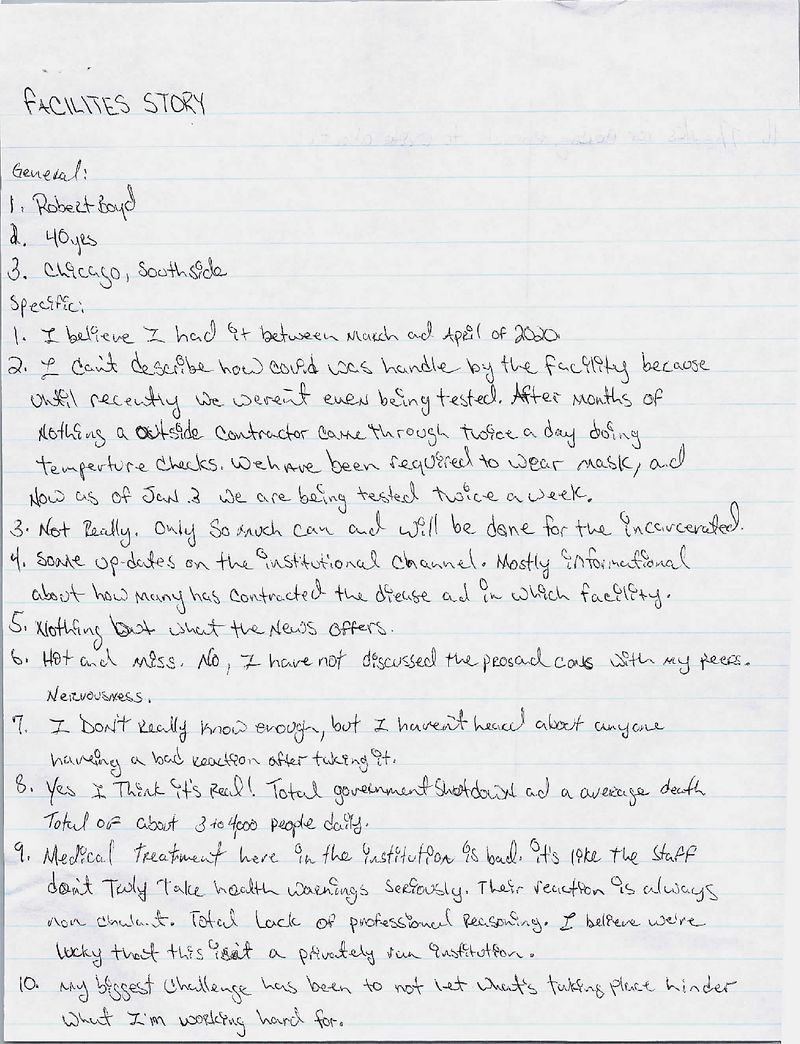 FACILITES STORY
General:
1. Robert Boyd
2. 40yes
3. Chicago, Southside
Specific:
1. I believe I had it between March ad April of 2020.
2. I can't describe how covid was handle by the facility because
until recently we weren't even being tested. After months of
Nothing a outside contractor came through twice a day doing
temperture checks. We have been required to wear mask, and
Now as of Jan 3 we are being tested twice a week.
3. Not Really. Only so much can and will be done for the incarcerated.
4. Some up-dates on the institutional channel. Mostly informational
about how many has contracted the diease ad in which facility.
5. Nothing but what the News offers.
6. Hot and miss. No, I have not discussed the pros ad cons with my peers.
Nervousness.
7. I Don't really know enough, but I haven't heard about anyone
having a bad reaction after taking it.
8. Yes I Think it's Real! Total government Shotdown ad a average death
Total of about 3 to 4000 people daily.
9. Medical treatment here in the institution is bad. it's like the staff
don't Truly Take health warnings seriously. Their reaction is always
non chalant. Total Lack of professional Reasoning. I believe we're
lucky that this isn't a privately run institution.
10. My biggest challenge has been to not let what's taking place hinder
what I'm working hard for.